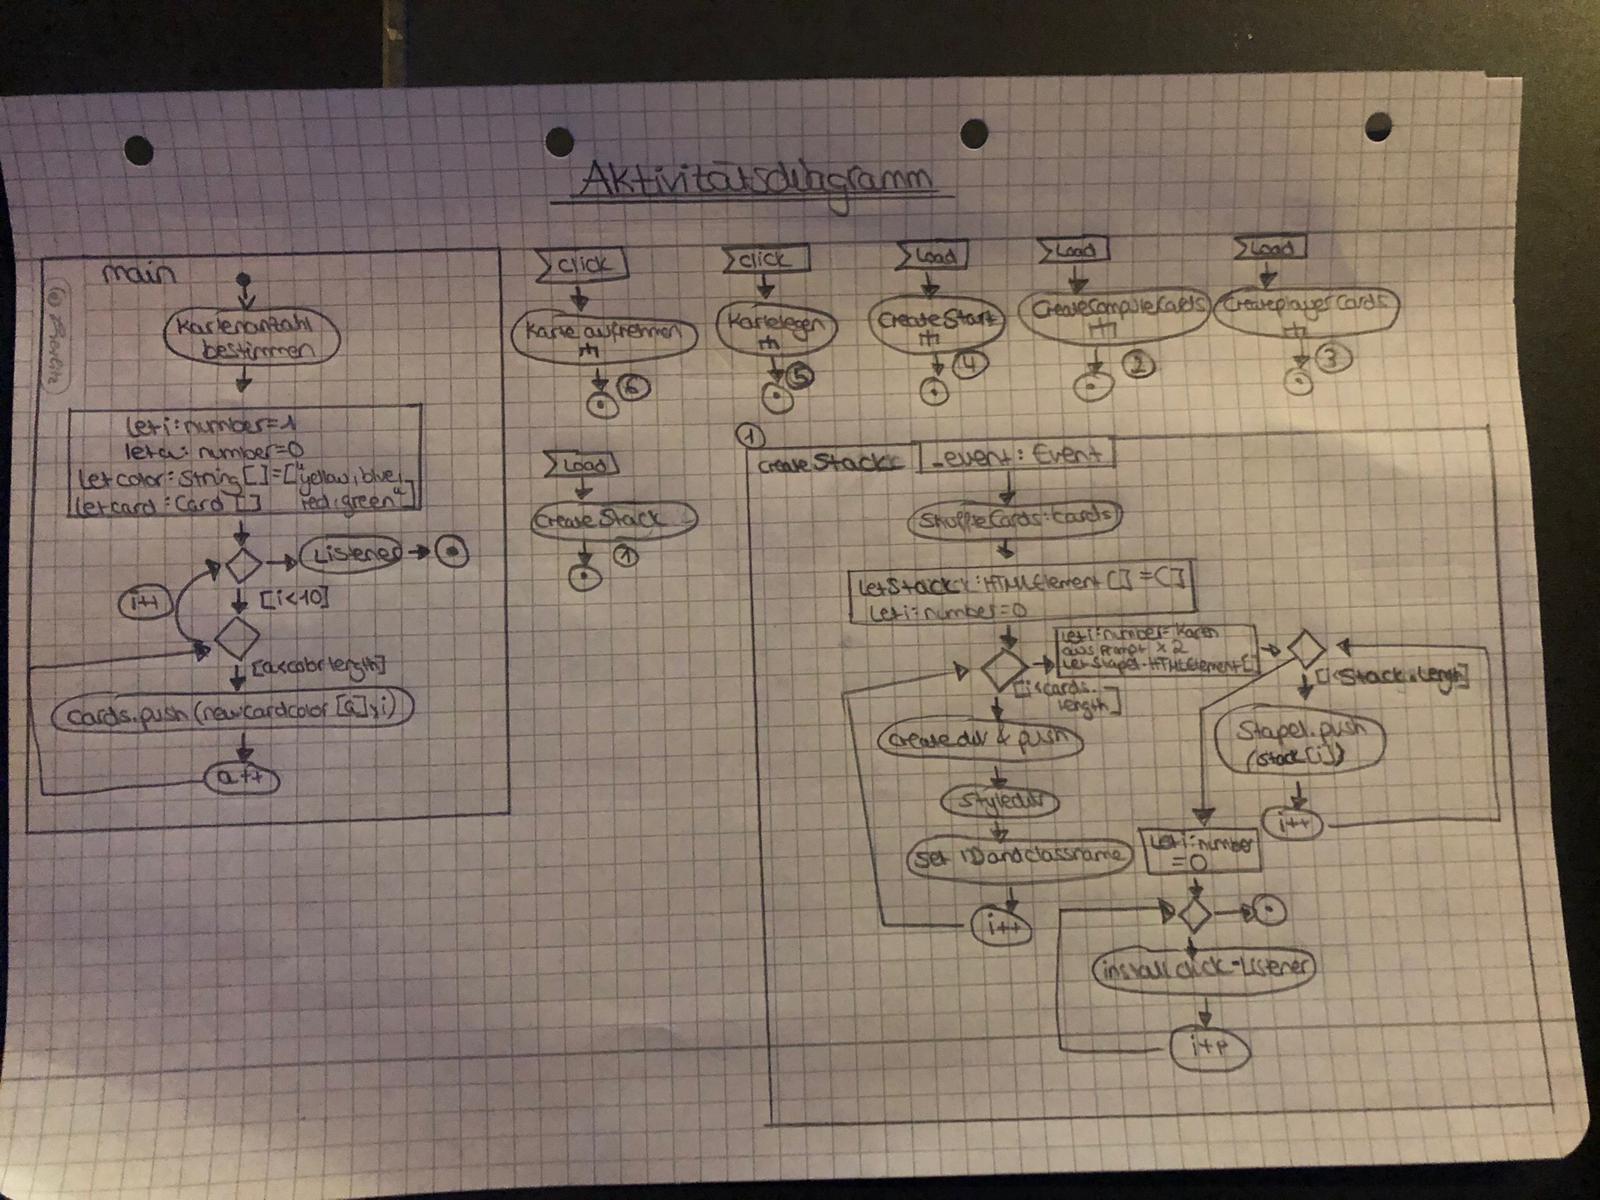 Aktivitätsdiagramm
main
Kartenanzahl
bestimmen
let i: number=1
let a: number=0
let color: String[]=["yellow, blue,
red, green"]
let card: Card[]
Listener
i++
[i<10]
[a<color length]
cards.push(new card color [a], i)
a++
click
Karte aufnehmen
6
click
Karte legen
5
Load
Create Start
4
Load
Create Compute Cards
2
Load
Create player Cards
3
Load
Create Stack
1
1
create Stack
_event: Event
Shuffle Cards: cards
let Stack: HTMLElement [] = []
let i: number=0
let i: number= Karten
aus Prompt x 2
let Stapel: HTMLElement[
[i<cards.
length]
[i<Stack.length]
Create div & push
Stapel.push
(stack[i])
Style div
i++
set ID and classname
let i: number
=0
i++
install click-Listener
i++